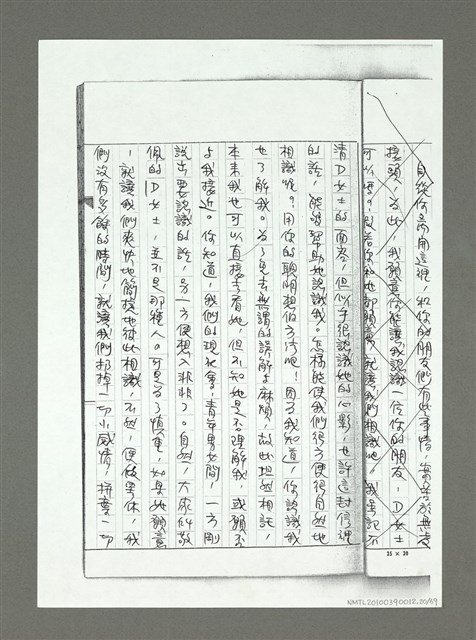 接頭，為此，我願意你能讓我認識一位你的朋友，D女士
可以嗎？假若你和她都願意，就讓我們相識吧。我雖記不
清D女士的面容，但似乎很認識她的心影，也許這封信裡
的話，能夠幫助她認識我。怎樣能使我們很方便很自然地
相識呢？用你的聰明想個方法吧！因為我知道，你認識我
也了解我。為了免去無謂的誤解與麻煩，故此坦然相託，
本來我也可以直接去看她，但不知她是否理解我，或願否
與我接近。你知道，我們的現社會，青年男女間，一方剛
說出要認識的話，另一方便想入非非了。自然，大家所敬
佩的D女士，並不是那種人。可是為了慎重，如果她願意
，就讓我們爽快地簡捷地彼此相識，不然，便做罷休，我
們沒有多餘的時間，就讓我們打掉一切小感情，拋棄一切
25 × 20
NMTL20100390012.20/39